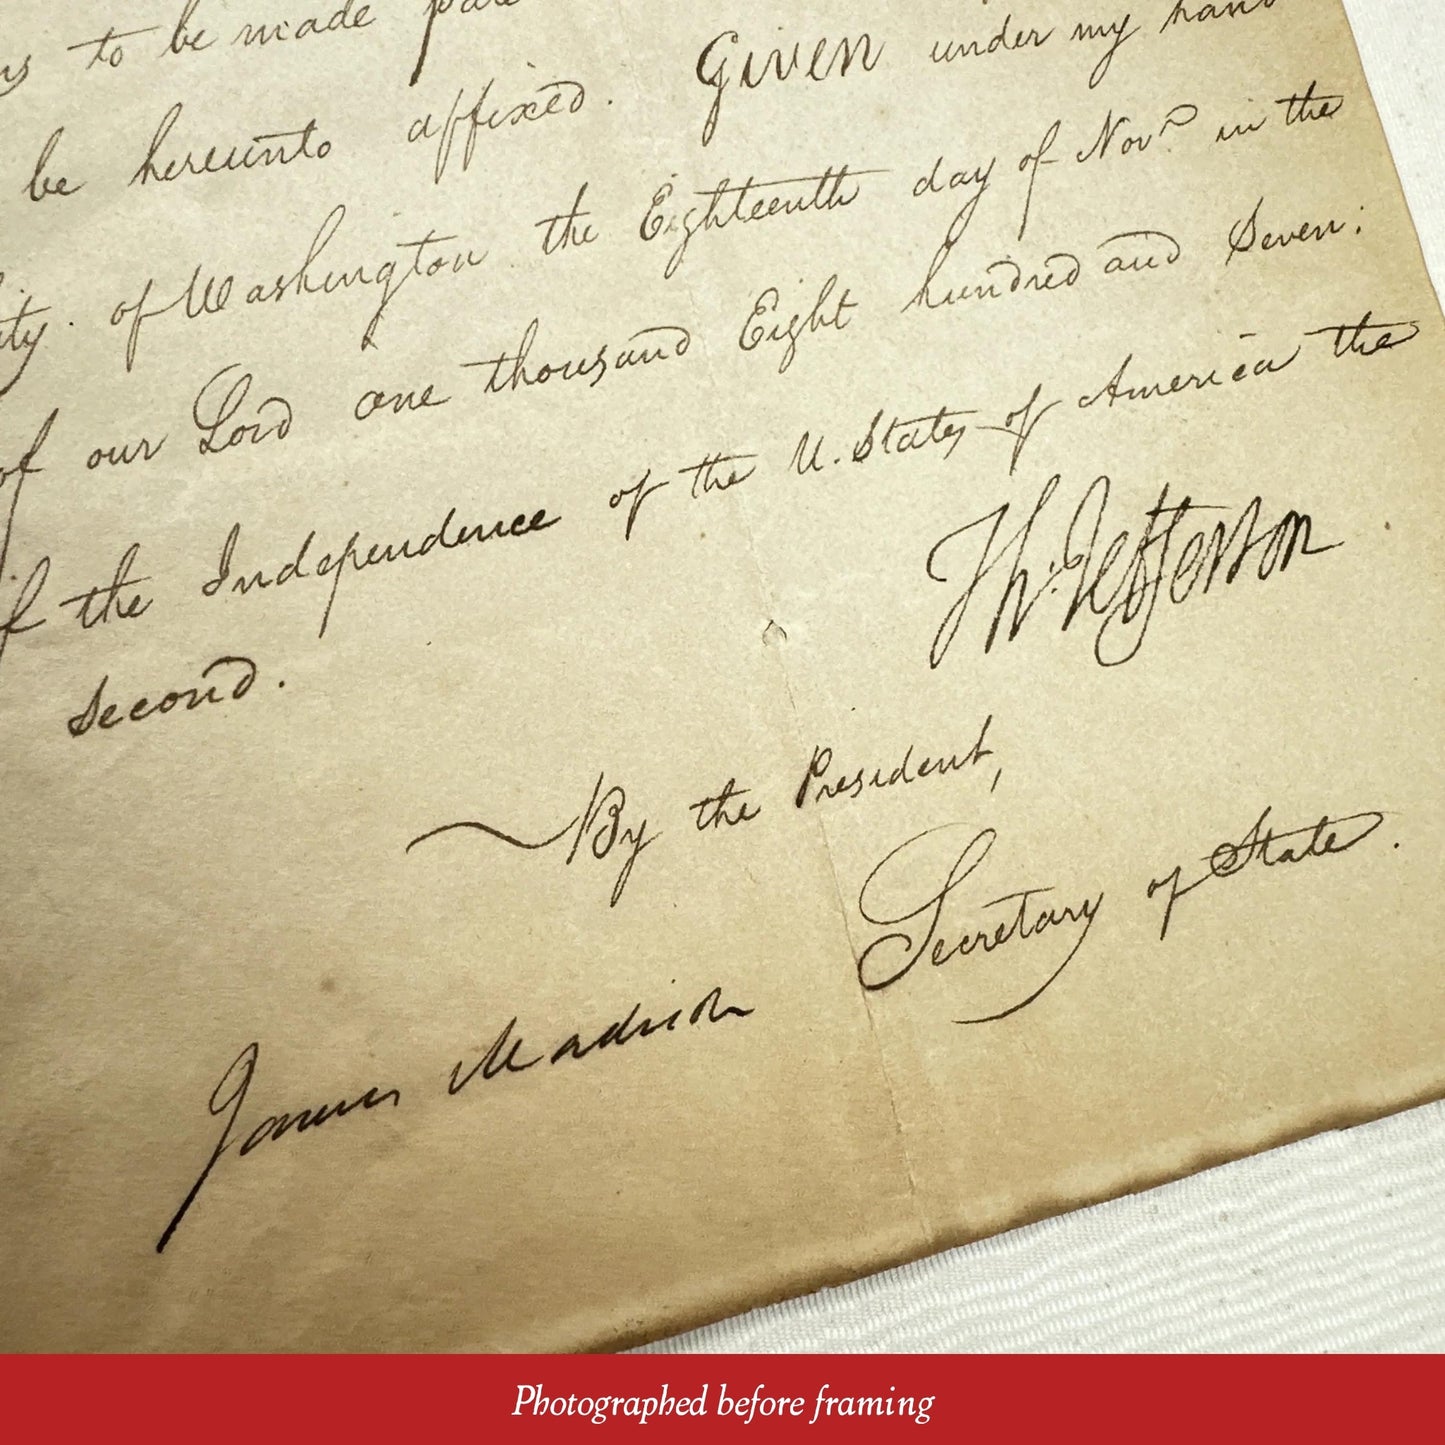 to be made
be hereunto affixed. Given under my hand
of Washington the Eighteenth day of Novr. in the
of our Lord one thousand Eight hundred and Seven:
the Independence of the U. States of America the
second.
Th: Jefferson
By the President,
Secretary of State.
James Madison
Photographed before framing